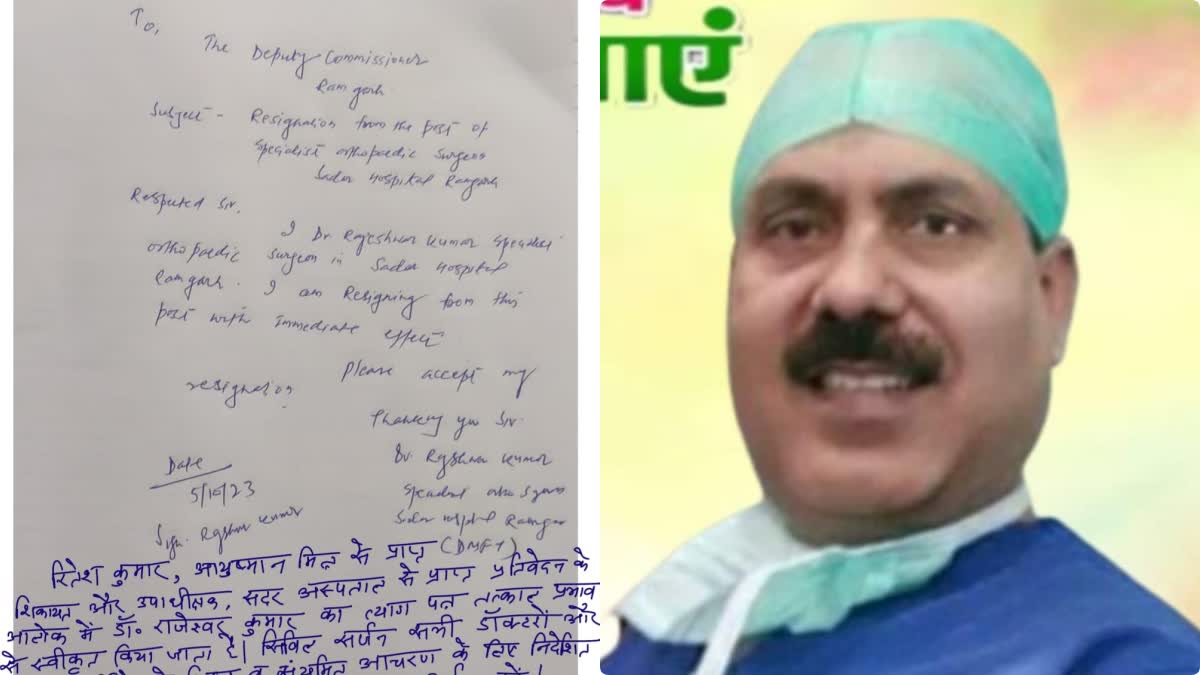 To,
The Deputy Commissioner
Ramgarh.
Subject - Resignation from the post of
specialist orthopaedic surgeon
Sadar Hospital Ramgarh
Respected Sir.
I Dr. Rajeshwar Kumar
orthopaedic surgeon in Sadar Hospital
Ramgarh. I am Resigning from this
post with immediate effect
Please accept my
resignation.
Thanking you Sir.
Dr. Rajeshwar Kumar
Sadar Hospital
(DMFT)
Date
5/10/23
Kumar
रितेश कुमार, आयुष्मान मित्र से प्राप्त
शिकायत और उपाधीक्षक, सदर अस्पताल से प्राप्त प्रतिवेदन के
आलोक में डॉ. राजेश्वर कुमार का त्याग पत्र तत्काल प्रभाव
से स्वीकृत किया जाता है। सिविल सर्जन सभी डॉक्टरों और
व संयमित आचरण के लिए निर्देशित
ाएं